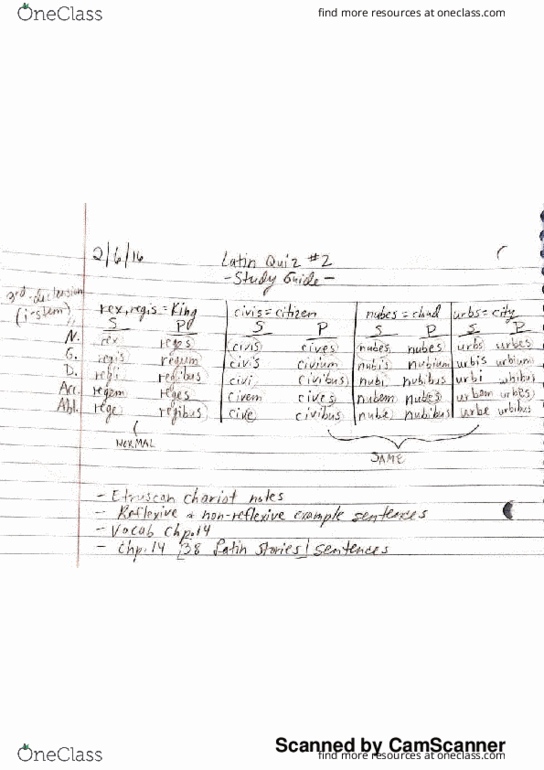 OneClass find more resources at oneclass.com
2/6/16 Latin Quiz #2
-Study Guide-
3rd-declension
(i-stem)
rex, regis = King civis = citizen nubes = cloud urbs = city
S Pl S P S P S P
N. rex reges civis cives nubes nubes urbs urbes
G. regis regum civis civium nubis nubium urbis urbium
D. regi regibus civi civibus nubi nubibus urbi urbibus
Acc. regem reges civem cives nubem nubes urbem urbes
Abl. rege regibus cive civibus nube nubibus urbe urbibus
NORMAL
SAME
- Etruscan chariot notes
- Reflexive + non-reflexive example sentences
- Vocab Chp.14
- Chp.14 38 Latin Stories/sentences
Scanned by CamScanner
OneClass find more resources at oneclass.com